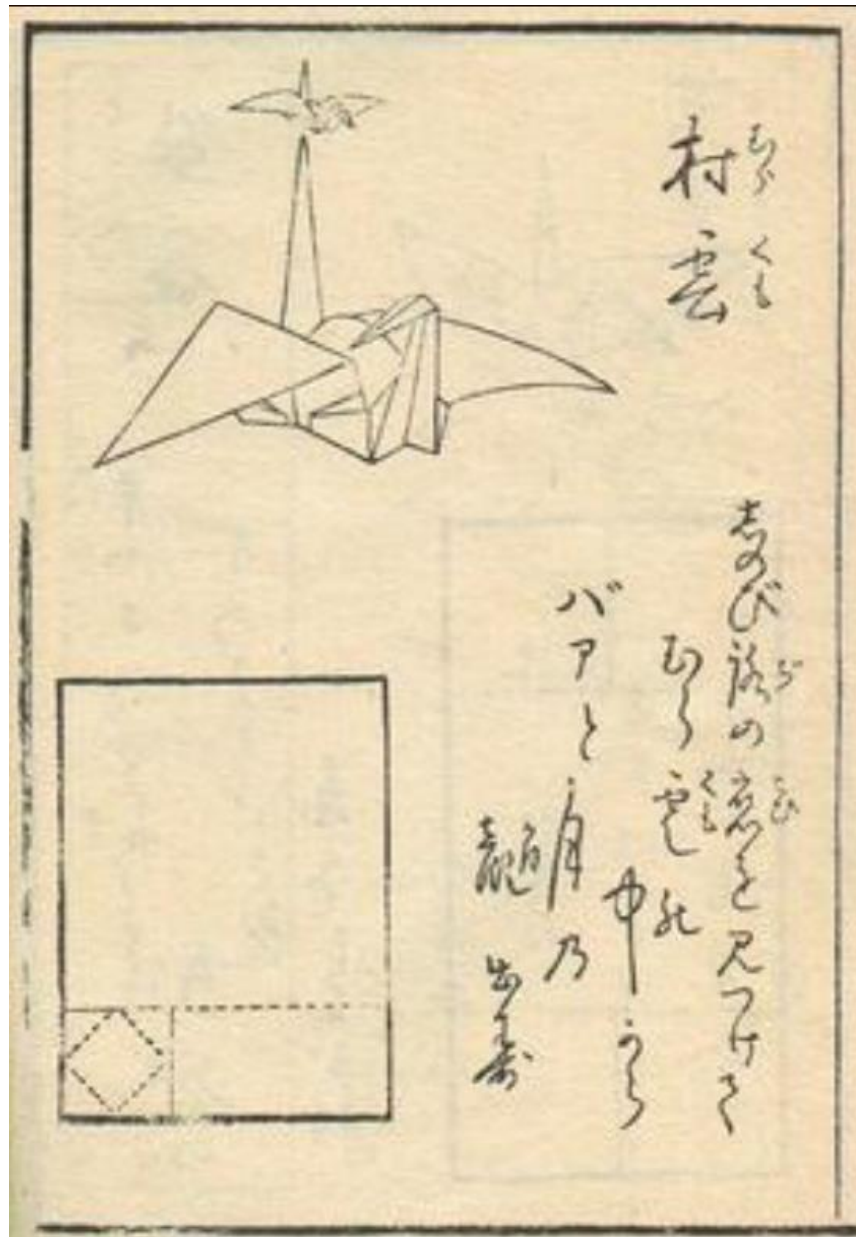 村雲
むら くも
志のび路の恋を見つけて
ぢ こひ
むら雲の
くも
中から
バアと月乃
顔出す